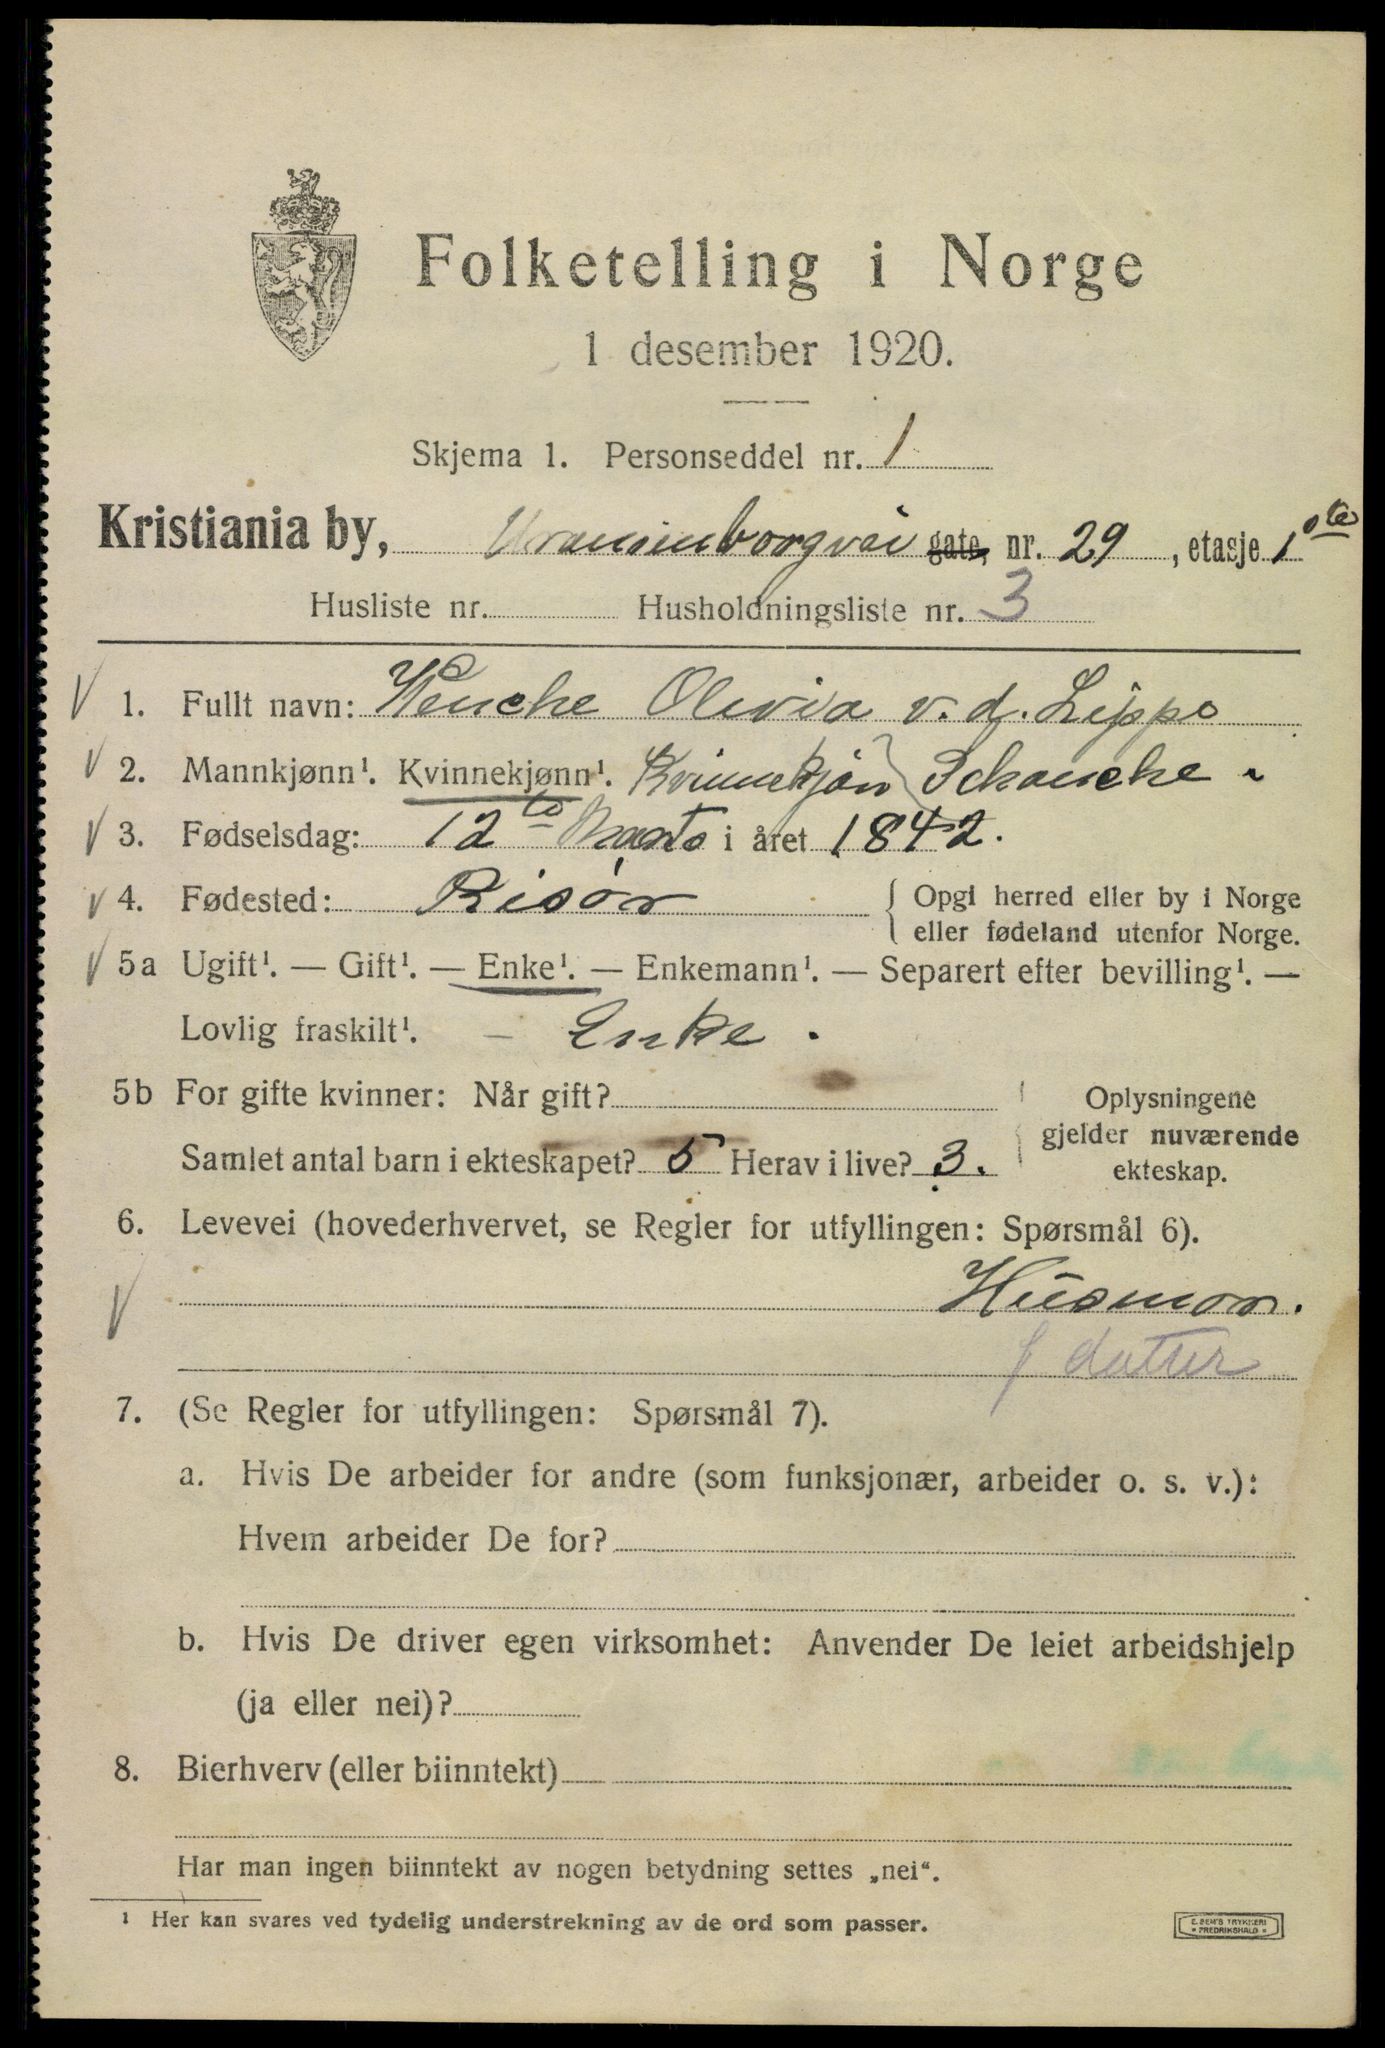 Folketelling i Norge
1 desember 1920.
Skjema 1. Personseddel nr. 1
Kristiania by, Uranienborgvei gate, nr. 29, etasje 1ste
Husliste nr. Husholdningsliste nr. 3
1. Fullt navn: Wenche Olivia v. d. Lippe
2. Mannkjønn¹. Kvinnekjønn¹. Kvinnekjøn Schanche.
3. Fødselsdag: 12te Marts i året 1842.
4. Fødested: Risør { Opgi herred eller by i Norge
eller fødeland utenfor Norge.
5a Ugift¹. — Gift¹. — Enke¹. — Enkemann¹. — Separert efter bevilling¹. —
Lovlig fraskilt¹. – Enke.
5b For gifte kvinner: Når gift? Oplysningene
gjelder nuværende
Samlet antal barn i ekteskapet? 5 Herav i live? 3. ekteskap.
6. Levevei (hovederhvervet, se Regler for utfyllingen: Spørsmål 6).
Husmor.
f datter
7. (Se Regler for utfyllingen: Spørsmål 7).
a. Hvis De arbeider for andre (som funksjonær, arbeider o. s. v.):
Hvem arbeider De for?
b. Hvis De driver egen virksomhet: Anvender De leiet arbeidshjelp
(ja eller nei)?
8. Bierhverv (eller biinntekt)
Har man ingen biinntekt av nogen betydning settes „nei“.
¹ Her kan svares ved tydelig understrekning av de ord som passer.
E. SEM'S TRYKKERI
* FREDRIKSHALD *